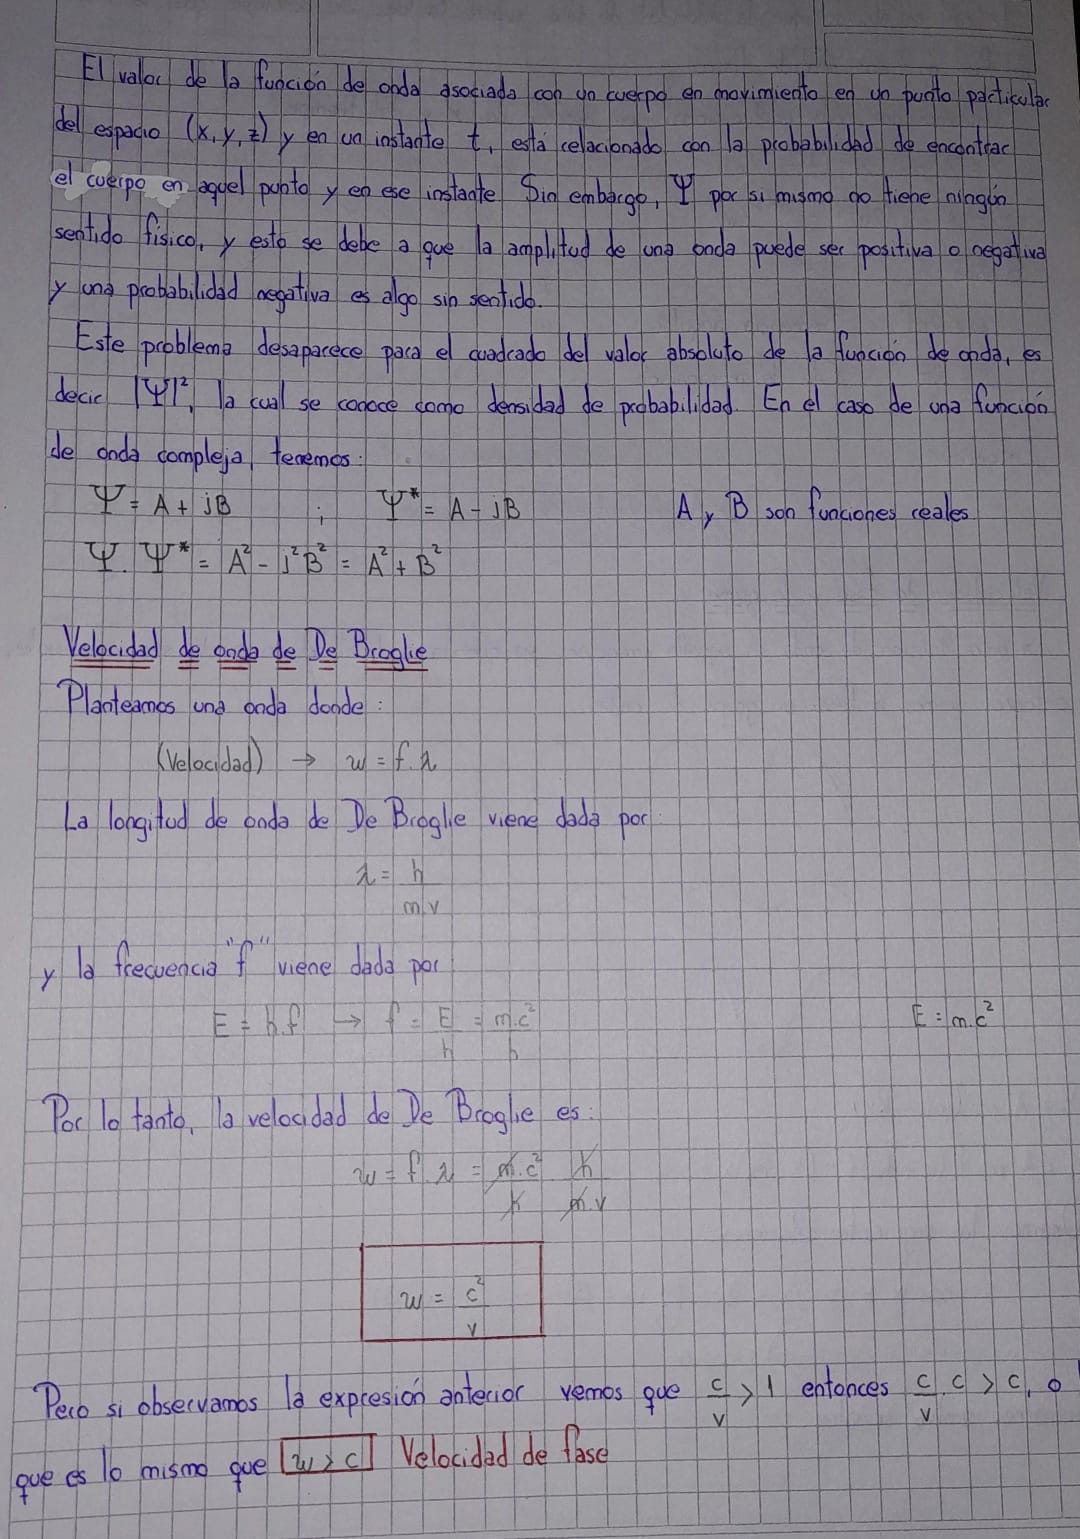 El valor de la función de onda asociada con un cuerpo en movimiento en un punto particular
del espacio (x, y, z) y en un instante t, está relacionado con la probabilidad de encontrar
el cuerpo en aquel punto y en ese instante Sin embargo, Ψ por si mismo no tiene ningún
sentido físico, y esto se debe a que la amplitud de una onda puede ser positiva o negativa
y una probabilidad negativa es algo sin sentido.
Este problema desaparece para el cuadrado del valor absoluto de la función de onda, es
decir |Ψ|², la cual se conoce como densidad de probabilidad. En el caso de una función
de onda compleja, tenemos:
Ψ = A + jB ; Ψ* = A - jB A y B son funciones reales
Ψ . Ψ* = A² - j²B² = A² + B²
Velocidad de onda de De Broglie
Planteamos una onda donde :
(Velocidad) → w = f.λ
La longitud de onda de De Broglie viene dada por:
λ = h / m.v
y la frecuencia "f" viene dada por
E = h.f → f = E/h = m.c²/h E = m.c²
Por lo tanto, la velocidad de De Broglie es:
w = f.λ = m.c²/h h/m.v
w = c²/v
Pero si observamos la expresión anterior vemos que c/v > 1 entonces c/v . c > c, o
que es lo mismo que w > c Velocidad de fase